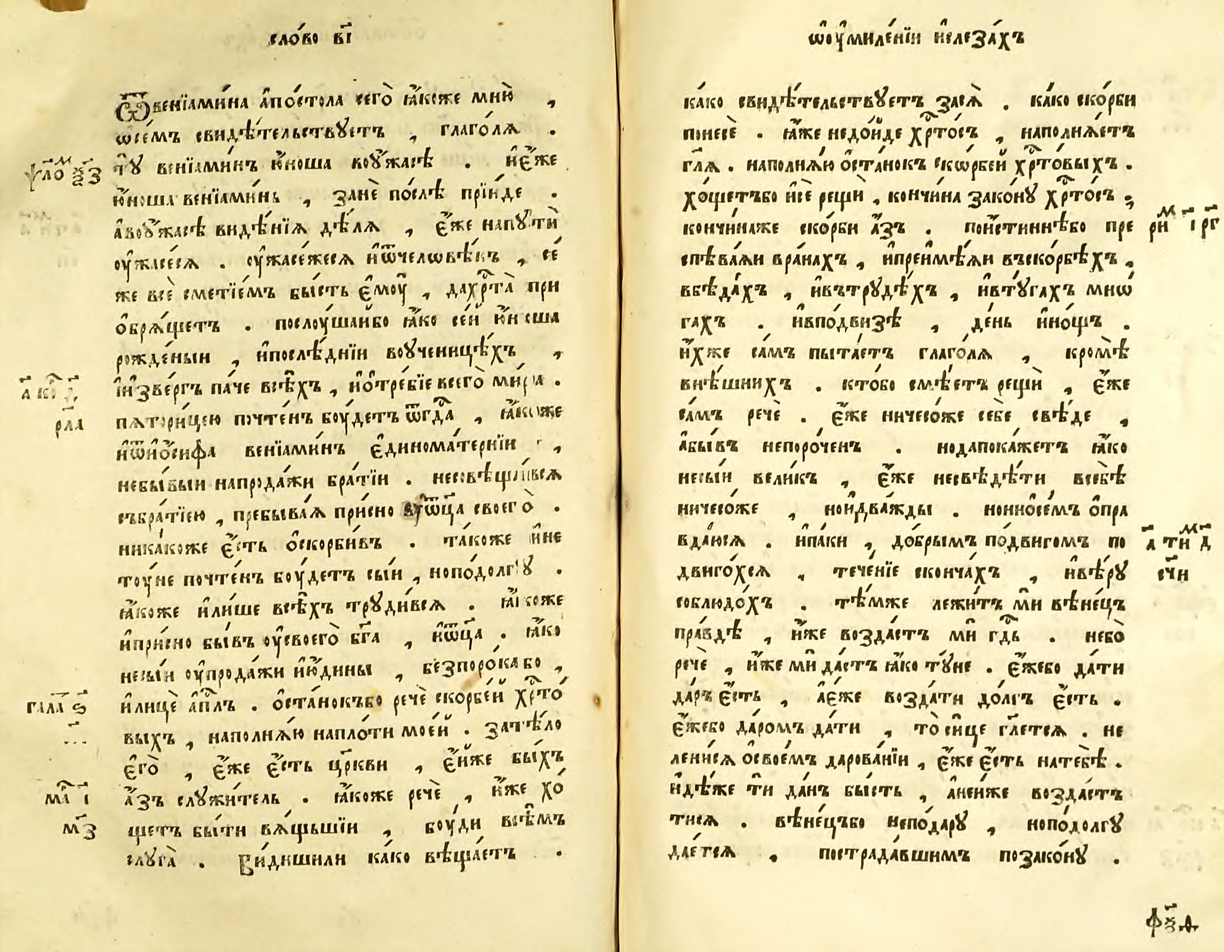 сло́во в҃і
Ѿвенїами́на а҆по́стола сего̀ ꙗ҆́коже мню̀ ,
ѡсе́мъ свидѣ́тельствꙋетъ , глаго́лѧ .
тꙋ̀ венїами́нъ ю҆́ноша воꙋ҆́жасѣ . и҆є҆́же
ю҆́ноша венїами́нь , занѐ послѣ̀ прїи́де .
авоꙋ҆́жасѣ видѣ́нїѧ дѣ́лѧ , є҆́же напꙋтѝ
оу҆жасесѧ . оу҆жасе́жесѧ и҆ѿчеловѣ́къ , се́
же всѐ сметїе́мъ бы́сть є҆моу̀ , дахрⷭ҇та̀ при
ѡ҆брѧ́щетъ . послоу́шайбо ꙗ҆́ко се́й ю҆́ноша
рожде́ныи , и҆послѣ́днїи воу҆ченицѣ́хъ ,
и҆́звергъ па́че всѣ́хъ , и҆о҆тре́бїе всего̀ ми́ра .
пѧтори́цею почте́нъ боу́детъ тогда̀ , ꙗ҆́коже
и҆ѿїѡ҆́сифа венїами́нъ є҆диномате́рнїи ,
небы́выи напрода́жи бра́тїи . несовѣща́всѧ
събра́тїею , пребыва́ѧ при́сно вꙋѻ҆ц҃а̀ своего̀ .
ника́коже є҆́сть о҆скорби́въ . та́коже и҆не
тоу́не почте́нъ боу́детъ сы́и , нопо́долгꙋ .
ꙗ҆́коже и҆ли́ше всѣ́хъ трꙋди́всѧ . ꙗ҆́коже
и҆при́сно бы́въ оу҆своего̀ бг҃а , и҆ѻ҆ц҃а̀ . ꙗ҆́ко
несы́и оу҆прода́жи и҆ю́дины , безпоро́ка бо ,
и҆лицѐ а҆пⷭ҇лъ . ѡ҆ста́нокъбо речѐ скорбе́й хрⷭ҇то́
выхъ , наполнѧ́ю напло́ти мое́й . затѣ́ло
є҆гѡ̀ , є҆́же є҆́сть цр҃кви , є҆́йже бы́хъ
а҆́зъ слꙋжи́тель . ꙗ҆́коже речѐ , и҆́же хо́
щетъ бы́ти вѧ́щьшїи , боу́ди всѣ́мъ
слꙋга̀ . Ви́дишили ка́ко вѣща́етъ .
ѡ҆оу҆миле́нїи и҆слеза́хъ
ка́ко свидѣ́тельствꙋетъ засѧ̀ . ка́ко ско́рби
понесѐ . ꙗ҆́же недо́йде хрⷭ҇то́съ , наполнѧ́етъ
гл҃ѧ . наполнѧ́ю ѡ҆ста́нокъ скорбе́й хрⷭ҇то́выхъ .
хо́щетъбо и҆сѐ рещѝ , кончи́на зако́нꙋ хрⷭ҇то́съ ,
кончи́наже ско́рби а҆́зъ . пои҆́стиннѣбо пре
спѣва́ѧи вра́нахъ , и҆преимѣ́ѧи въско́рбѣхъ ,
вбѣда́хъ , и҆вътрꙋдѣ́хъ , и҆втꙋга́хъ мнѡ́
га́хъ . и҆вподви́зѣ , де́нь и҆но́щъ .
и҆́хже са́мъ пыта́етъ глаго́лѧ , кро́мѣ
внѣ́шнихъ . кто́бо смѣ́етъ рещѝ , є҆́же
са́мъ речѐ . є҆́же ничесо́же себѐ свѣ́де ,
а҆бы́въ непоро́ченъ . нодапока́жетъ ꙗ҆́ко
несы́и вели́къ , є҆́же несвѣ́дѣти всебѣ̀
ничесо́же , нои҆два́жды . нониѡсе́мъ ѡ҆пра
вда́юсѧ . и҆па́ки , до́брымъ по́двигомъ по
двиго́хсѧ , тече́нїе сконча́хъ , и҆вѣ́рꙋ
соблюдо́хъ . тѣ́мже лежи́тъ мѝ вѣне́цъ
пра́вдѣ , и҆́же возда́стъ мѝ гдⷭ҇ь . небо̀
речѐ , и҆́же мѝ да́стъ ꙗ҆́ко тꙋ́не . є҆́жебо да́ти
да́ръ є҆́сть , а҆є҆́же возда́ти до́лгъ є҆́сть .
є҆́жебо да́ромъ да́ти , то̀ си́це гл҃етсѧ . не
лени́сѧ ѡ҆свое́мъ дарова́нїи , є҆́же є҆́сть натебѣ̀ .
и҆дѣ́же тѝ да́нъ бы́сть , а҆не́иже возда́стъ
ти́сѧ . вѣне́цъбо непода́рꙋ , нопо́долгꙋ
дае́тсѧ , пострада́вшимъ позако́нꙋ .